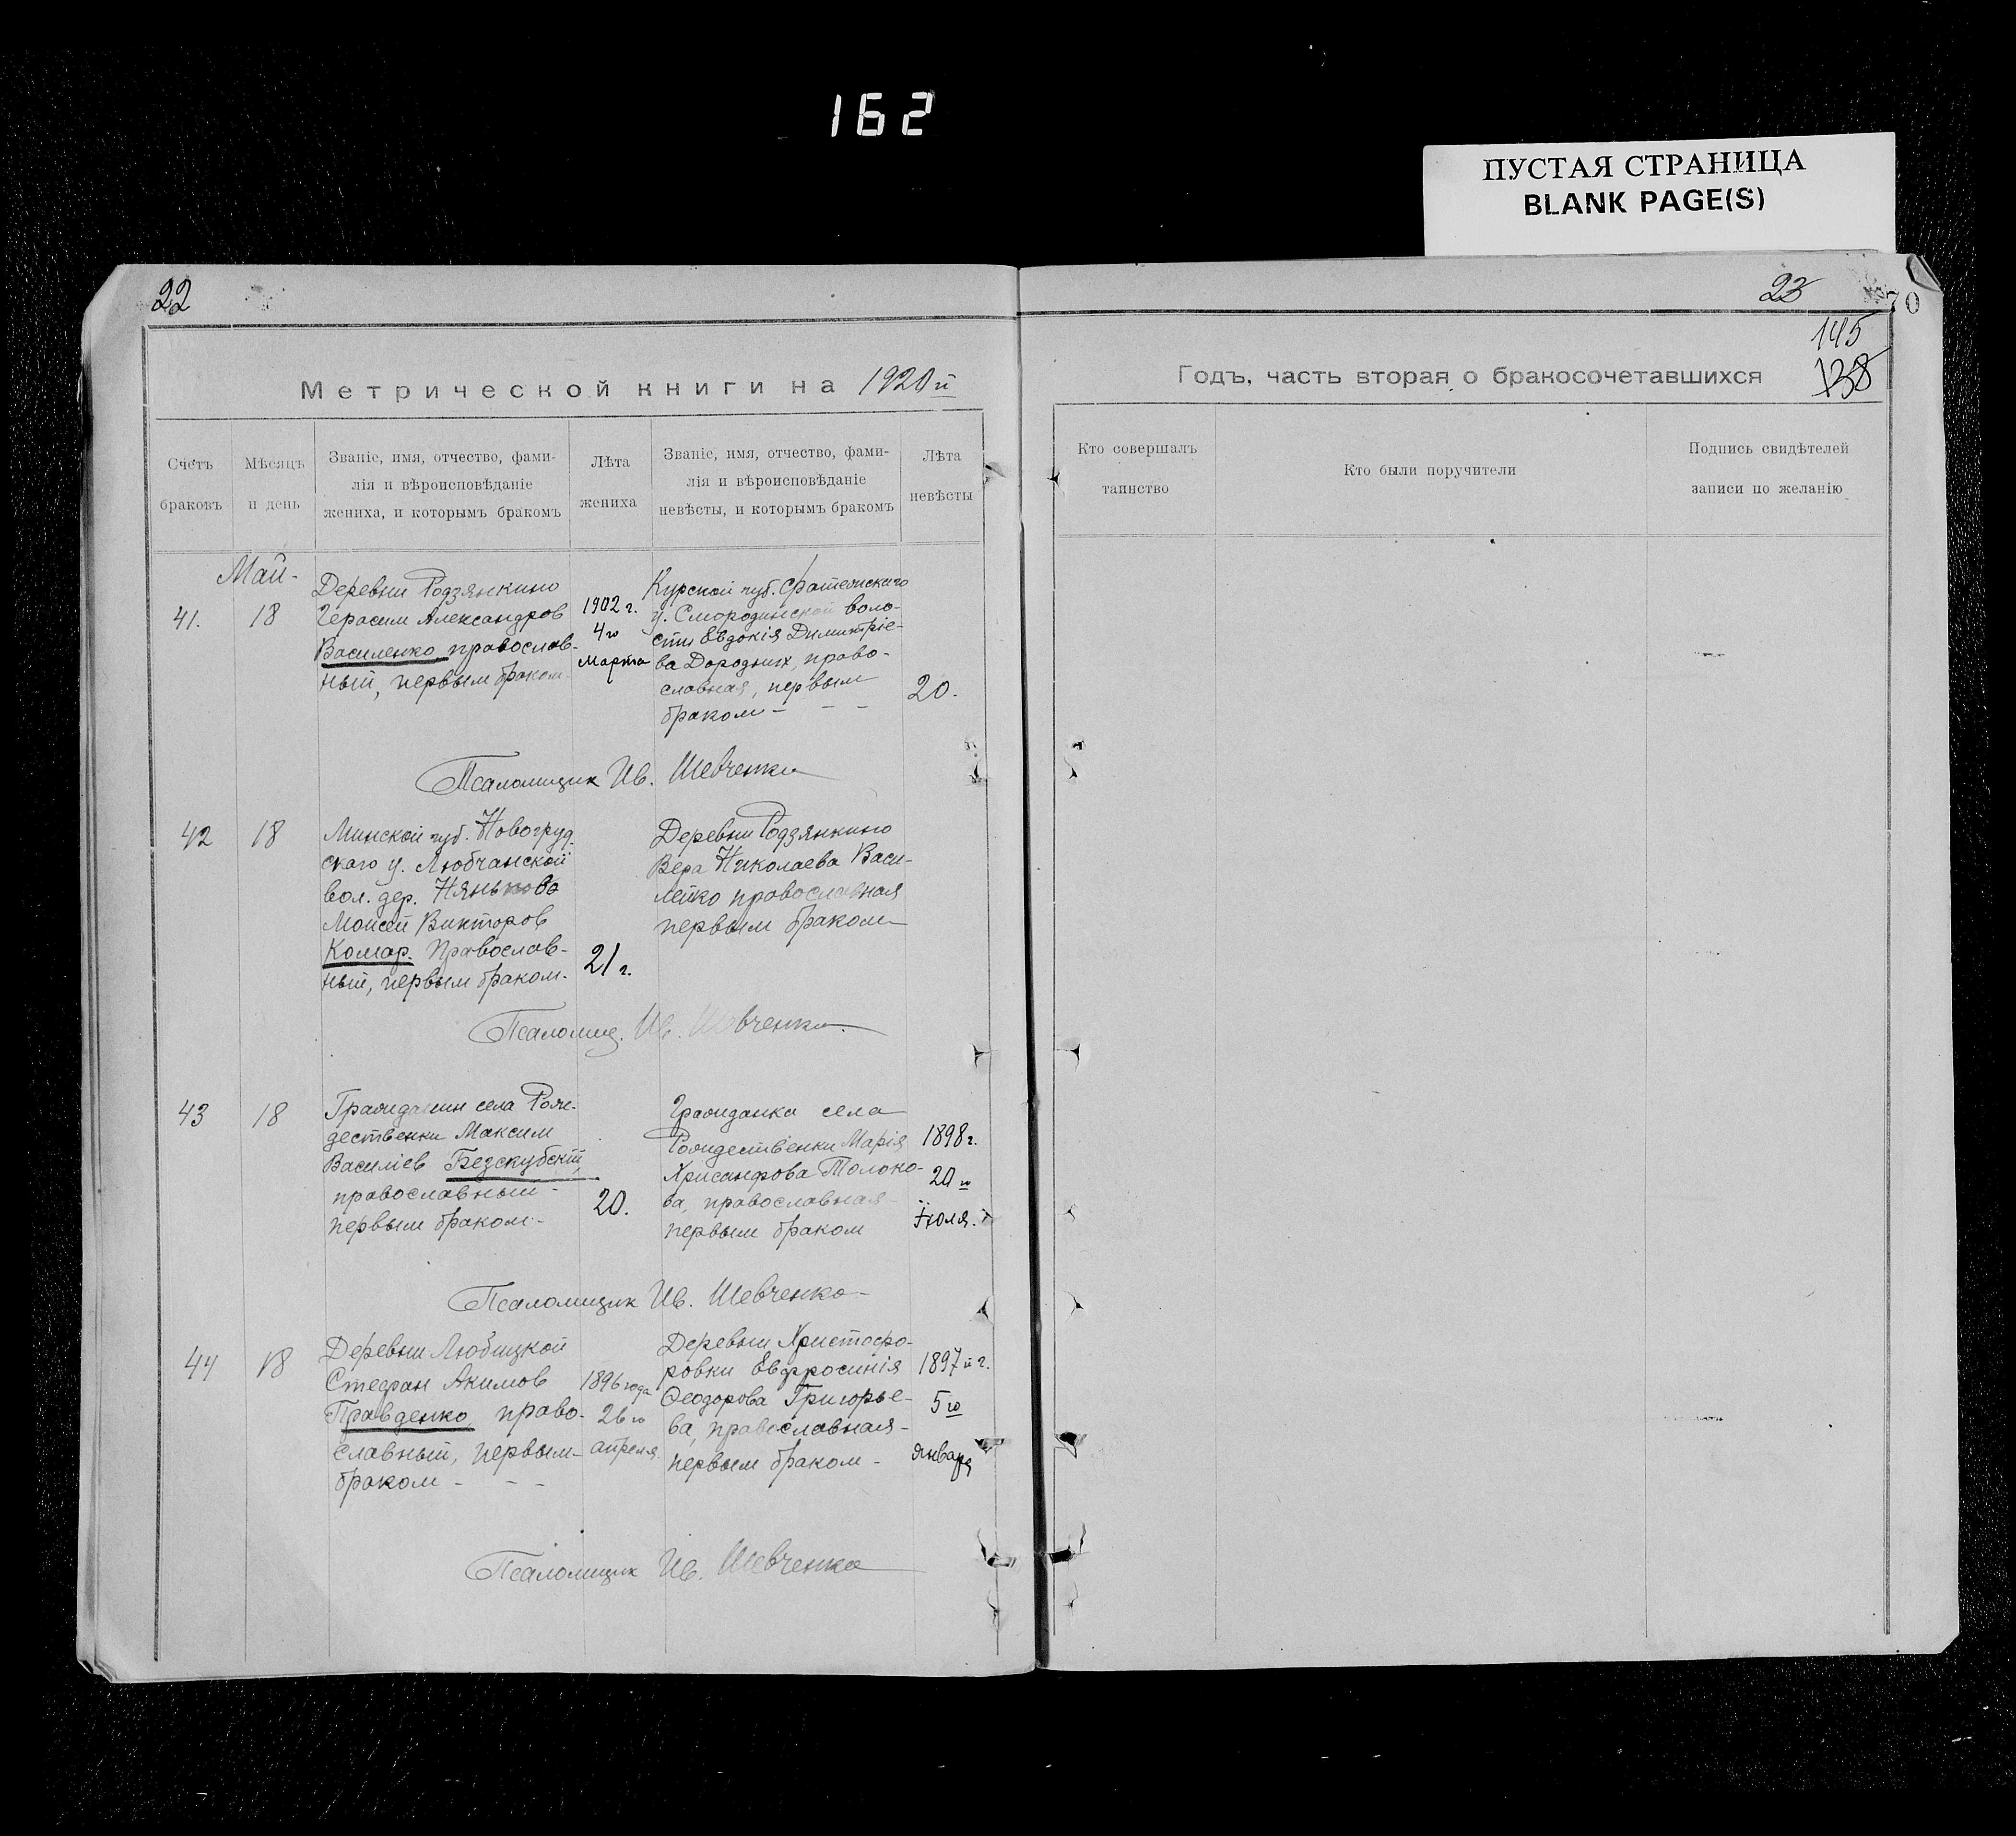 162
ПУСТАЯ СТРАНИЦА
BLANK PAGE(S)
22
23
70
145
138
Метрической книги на 1920й
Годъ, часть вторая о бракосочетавшихся
Счетъ браковъ
Мѣсяцъ и день
Званіе, имя, отчество, фами-
лія и вѣроисповѣданіе
жениха, и которымъ бракомъ
Лѣта жениха
Званіе, имя, отчество, фами-
лія и вѣроисповѣданіе
невѣсты, и которымъ бракомъ
Лѣта невѣсты
Кто совершалъ таинство
Кто были поручители
Подпись свидѣтелей
записи по желанію
Май-
41.
18
Деревни Родзянкино
Герасим Александров
Василенко, православ-
ный, первым браком
1902 г.
4го
Марта
Курской губ. Фатежскаго
у. Смородинской воло-
сти Евдокія Димитріе-
ва Дородных, право-
славная, первым
браком - - -
20.
Псаломщик Ив. Шевченко
42
18
Минской губ. Новогруд-
скаго у. Любчанской
вол. дер. Няньково
Моисей Викторов
Комар. Православ-
ный, первым браком.
21 г.
Деревни Родзянкино
Вера Николаева Васи-
лейко православная
первым браком
Псаломщ. Ив. Шевченко.
43
18
Гражданин села Рож-
дественки Максим
Василіев Безскубскій,
православный -
первым браком -
20.
Гражданка села
Рождественки Марія
Хрисанфова Толоко-
ва, православная -
первым браком
1898 г.
20го
Іюля.
Псаломщик Ив. Шевченко -
44
18
Деревни Любицкой
Стефан Акимов
Правденко, право-
славный, первым
браком - - -
1896 года
26го
апреля
Деревни Христофо-
ровки Евфросинія
Феодорова Григорье-
ва, православная -
первым браком -
1897й г.
5го
января
Псаломщик Ив. Шевченко